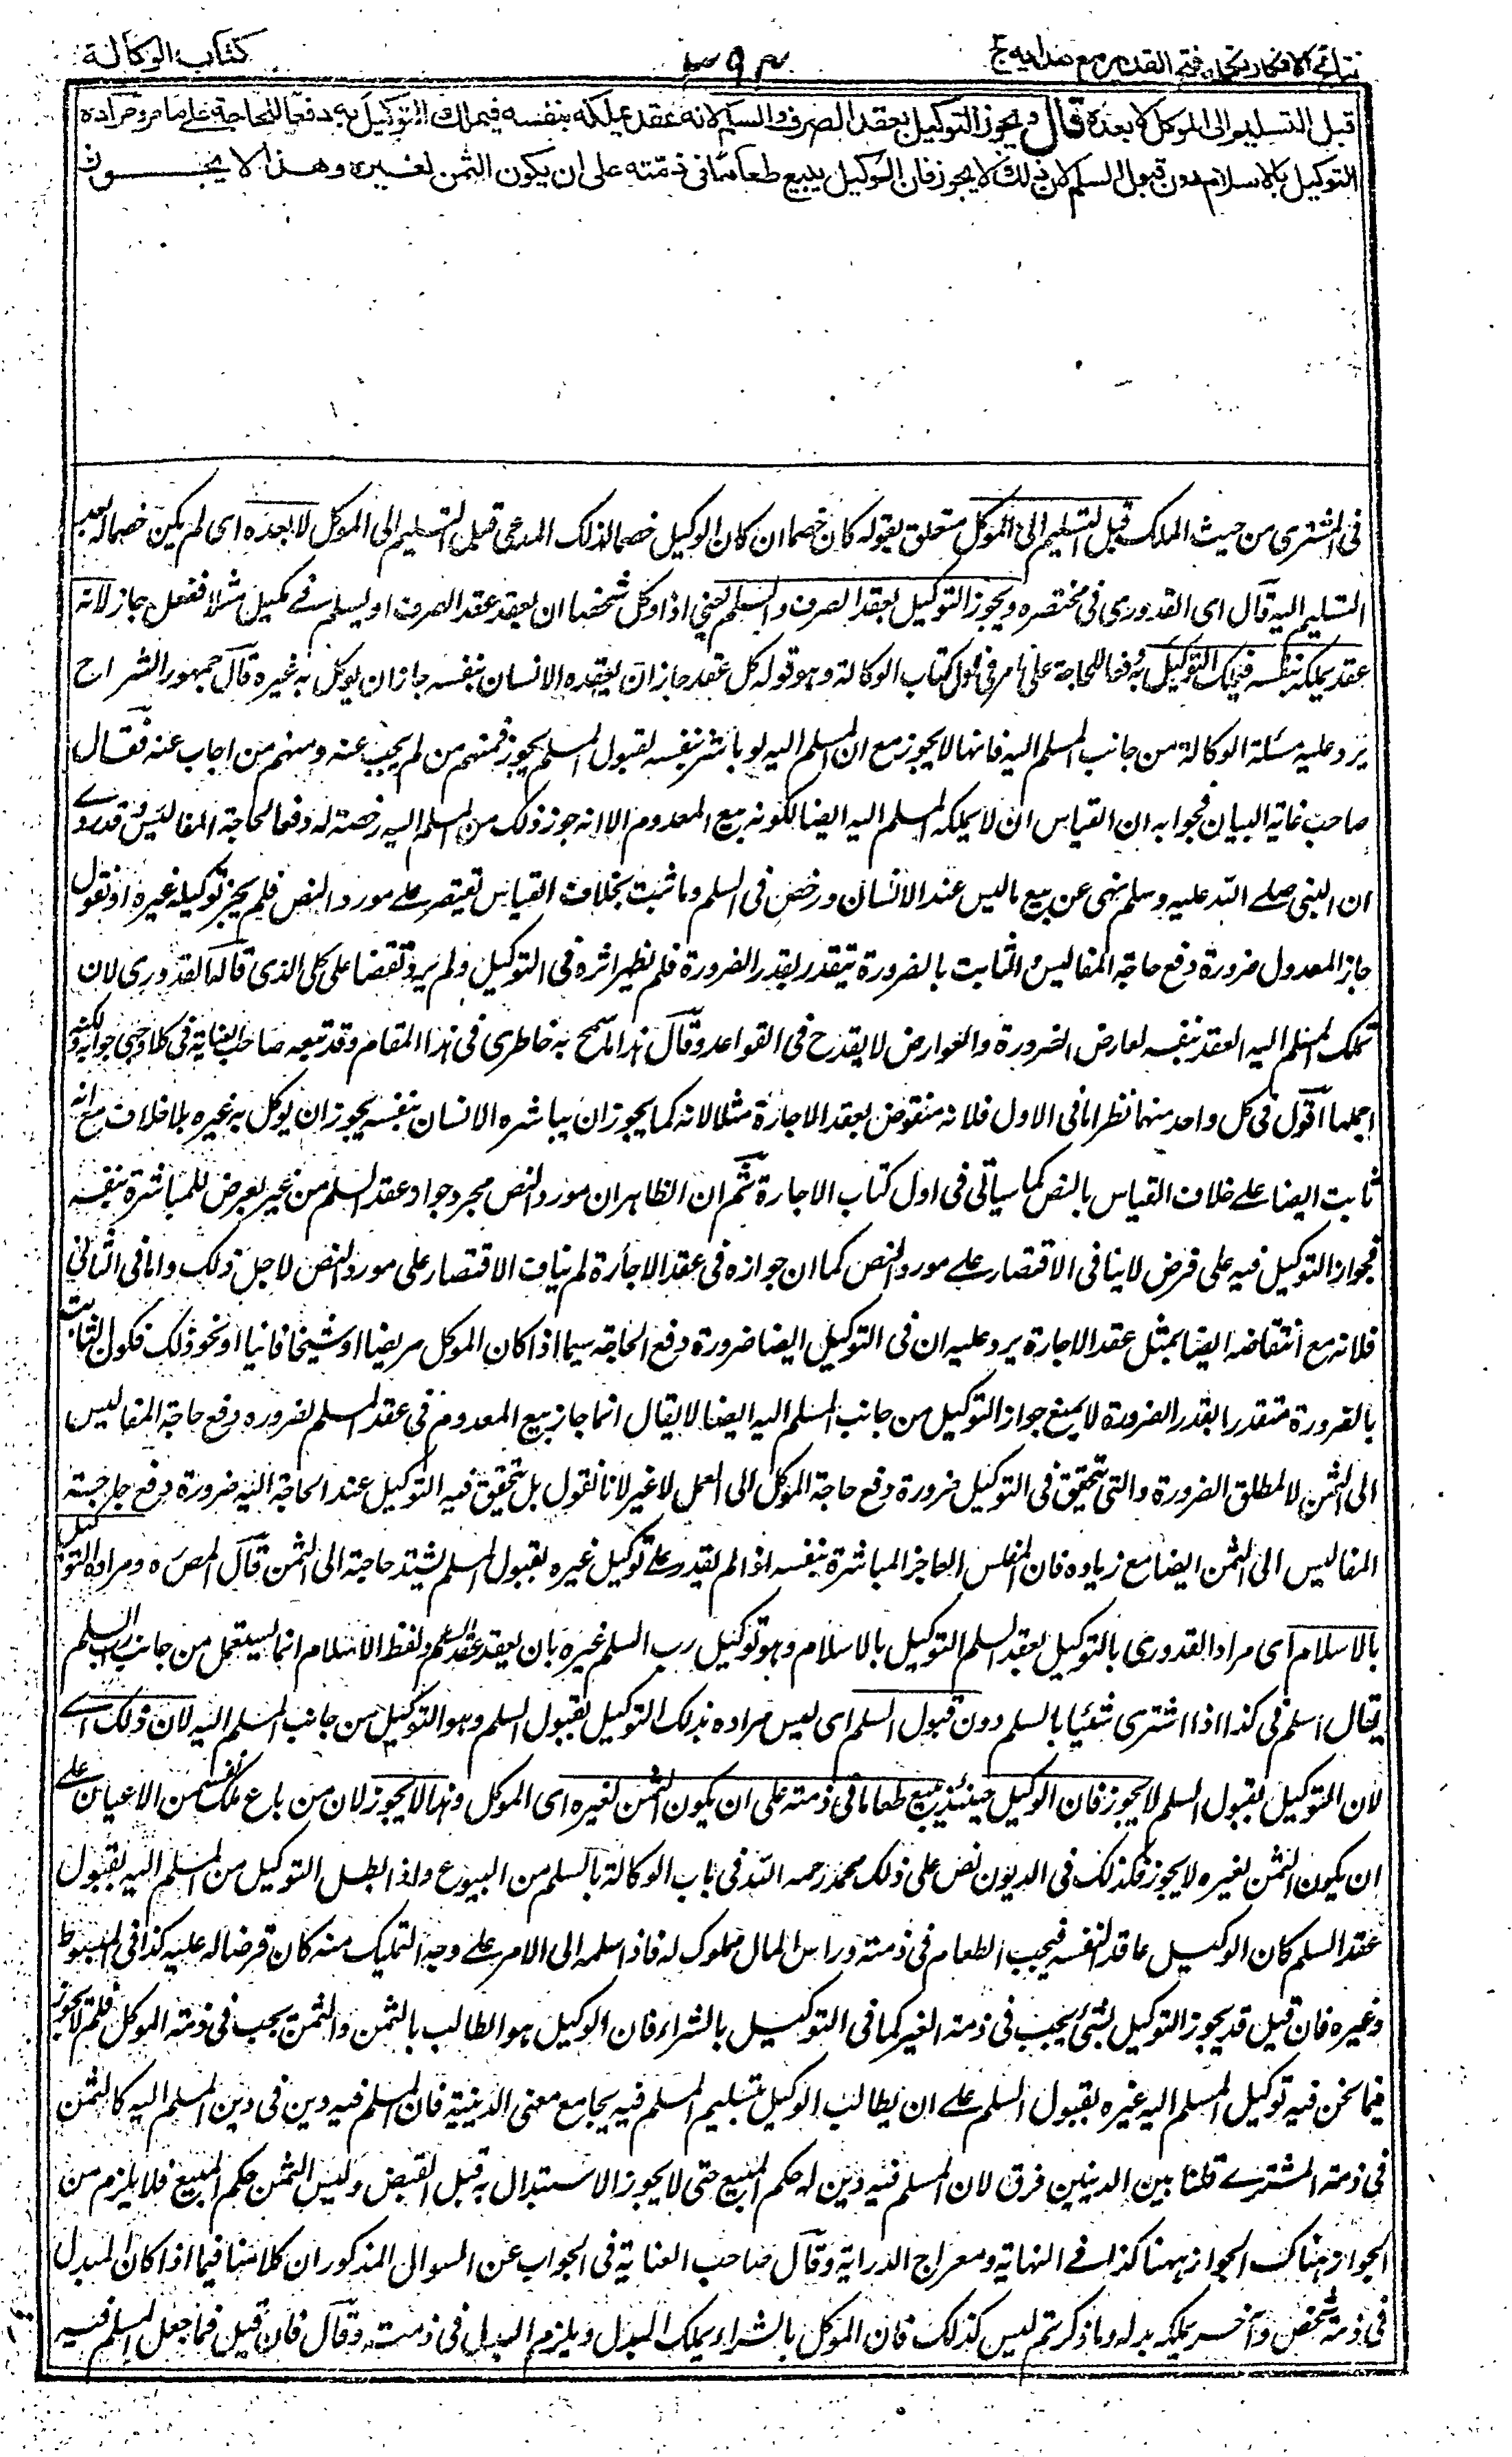 نتائج الافكار تكملة فتح القدير مع هداية ج
كتاب الوكالة
قبل التسليم الى الموكل لا بعده قال ويجوز التوكيل بعقد الصرف والسلم لانه عقد يملكه بنفسه فيملك التوكيل به دفعا للحاجة على ما مر ومراده
التوكيل بالاسلام دون قبول السلم لان ذلك لا يجوز فان الوكيل يبيع طعاما فى ذمته على ان يكون الثمن لغيره وهذا لا يجوز
فى المشترى من حيث الملك قبل التسليم الى الموكل متعلق بقوله كان خصما ان كان الوكيل خصما لذلك المدعى قبل التسليم الى الموكل لا بعده اى لم يكن خصما له بعد
التسليم اليه قال اى القدورى فى مختصره ويجوز التوكيل بعقد الصرف والسلم يعنى اذا وكل شخصا ان يعقد عقد الصرف او يسلم فى مكيل مثلا ففعل جاز لانه
عقد يملكه بنفسه فيملك التوكيل به دفعا للحاجة على ما مر فى اول كتاب الوكالة وهو قوله كل عقد جاز ان يعقده الانسان بنفسه جاز ان يوكل به غيره قال جمهور الشراح
يرد عليه مسئلة الوكالة من جانب المسلم اليه فانها لا يجوز مع ان المسلم اليه لو باشر بنفسه لقبول السلم يجوز فمنهم من لم يجب عنه ومنهم من اجاب عنه فقال
صاحب غاية البيان فجوابه ان القياس ان لا يملكه المسلم اليه ايضا لكونه بيع المعدوم الا انه جوز ذلك من المسلم اليه رخصة له دفعا لحاجة المفاليس وقد روى
ان النبى صلى الله عليه وسلم نهى عن بيع ما ليس عند الانسان ورخص فى السلم وما ثبت بخلاف القياس يقتصر على مورد النص فلم يجز توكيله غيره او نقول
جاز المعدول ضرورة دفع حاجة المفاليس والثابت بالضرورة يتقدر بقدر الضرورة فلم يظهر اثره فى التوكيل ولم يرد نقضا على كلى الذى قاله القدورى لان
تملك المسلم اليه العقد بنفسه لعارض الضرورة والعوارض لا يقدح فى القواعد وقال هذا ما سمح به خاطرى فى هذا المقام وقد تبعه صاحب العناية فى كلا وجهى جوابه ولكنه
اجملها اقول فى كل واحد منهما نظر اما فى الاول فلانه منقوض بعقد الاجارة مثلا لانه كما يجوز ان يباشره الانسان بنفسه يجوز ان يوكل به غيره بلا خلاف مع انه
ثابت ايضا على خلاف القياس بالنص كما سياتى فى اول كتاب الاجارة ثم ان الظاهر ان مورد النص مجرد جواز عقد السلم من غير تعرض للمباشرة بنفسه
فجواز التوكيل فيه على فرض لا ينافى الاقتصار على مورد النص كما ان جوازه فى عقد الاجارة لم يناف الاقتصار على مورد النص لاجل ذلك واما فى الثانى
فلانه مع انتقاضه ايضا بمثل عقد الاجارة يرد عليه ان فى التوكيل ايضا ضرورة دفع الحاجة سيما اذا كان الموكل مريضا او شيخا فانيا او نحو ذلك فكون الثابت
بالضرورة متقدرا بقدر الضرورة لا يمنع جواز التوكيل من جانب المسلم اليه ايضا لا يقال انما جاز بيع المعدوم فى عقد السلم لضرورة دفع حاجة المفاليس
الى الثمن لا لمطلق الضرورة والتى تتحقق فى التوكيل ضرورة دفع حاجة الموكل الى العمل لا غير لانا نقول بل تتحقق فيه التوكيل عند الحاجة اليه ضرورة دفع حاجة
المفاليس الى الثمن ايضا مع زيادة فان المفلس العاجز المباشرة بنفسه اذا لم يقدر على توكيل غيره لقبول السلم يشتد حاجة الى الثمن قال المص ره ومراده التوكيل
بالاسلام اى مراد القدورى بالتوكيل بعقد السلم التوكيل بالاسلام وهو توكيل رب السلم غيره بان يعقد عقد السلم ولفظ الاسلام انما يستعمل من جانب رب السلم
يقال اسلم فى كذا اذا اشترى شيئا بالسلم دون قبول السلم اى ليس مراده بذلك التوكيل لقبول السلم وهو التوكيل من جانب المسلم اليه لان ذلك اى
لان التوكيل بقبول السلم لا يجوز فان الوكيل حينئذ يبيع طعاما فى ذمته على ان يكون الثمن لغيره اى الموكل وهذا لا يجوز لان من باع ملك نفسه من الاعيان على
ان يكون الثمن لغيره لا يجوز فكذلك فى الديون نص على ذلك محمد رحمه الله فى باب الوكالة بالسلم من البيوع واذا بطل التوكيل من المسلم اليه بقبول
عقد السلم كان الوكيل عاقدا لنفسه فيجب الطعام فى ذمته وراس المال مملوك له فاذا سلمه الى الامر على وجه التمليك منه كان قرضا له عليه كذا فى المبسوط
وغيره فان قيل قد يجوز التوكيل بشئ يجب فى ذمة الغير كما فى التوكيل بالشراء فان الوكيل هو الطالب بالثمن والثمن يجب فى ذمة الموكل فلم لا يجوز
فيما نحن فيه توكيل المسلم اليه غيره بقبول السلم على ان يطالب الوكيل بتسليم المسلم فيه بجامع معنى الدينية فان المسلم فيه دين فى دين المسلم اليه كالثمن
فى ذمة المشترى قلنا بين الدينين فرق لان المسلم فيه دين له حكم المبيع حتى لا يجوز الاستبدال به قبل القبض وليس الثمن حكم المبيع فلا يلزم من
الجواز هناك الجواز ههنا كذا فى النهاية ومعراج الدراية وقال صاحب العناية فى الجواب عن السوال المذكور ان كلامنا فيما اذا كان المبدل
فى ذمة شخص وآخر يملكه بدله وما ذكرتم ليس كذلك فان الموكل بالشراء يملك المبدل ويلزم البدل فى ذمته وقال فان قيل فما جعل المسلم فيه